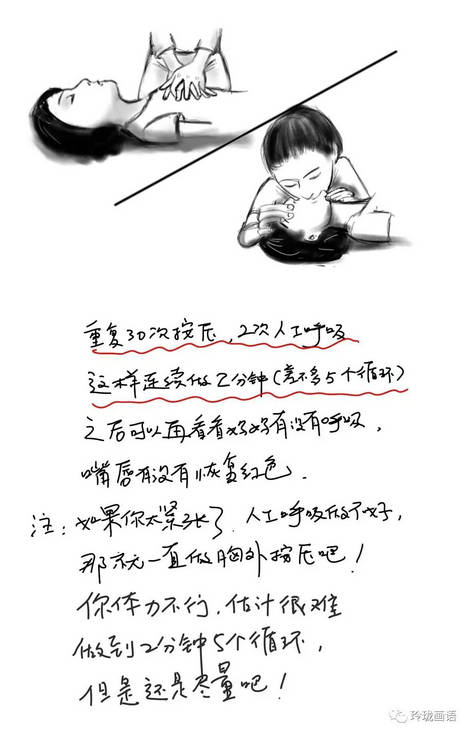 重复30次按压，2次人工呼吸
这样连续做2分钟(差不多5个循环)
之后可以再看看妈妈有没有呼吸，
嘴唇有没有恢复红色.
注：如果你太紧张了，人工呼吸做不好，
那就一直做胸外按压吧！
你体力不行，估计很难
做到2分钟5个循环，
但是还是尽量吧！
玲珑画语